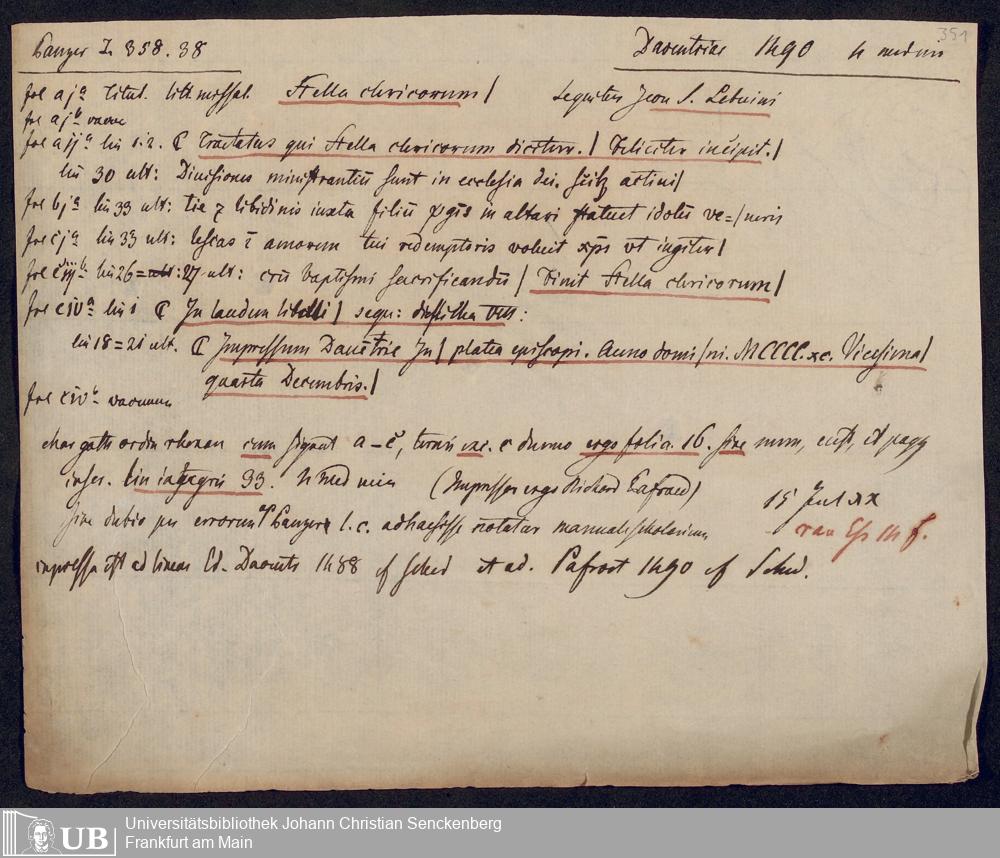 351
Panzer I. 358. 38 Daventriae 1490 4 med min
fol aj a titul. litt. missal. Stella clericorum | sequitur Icon S. Lebuini
fol aj b vacuum
fol a ij a lin 1.2. ₵ Tractatus qui Stella clericorum dicitur. | Feliciter incipit. |
lin 30 ult: Diuisiones ministrantiũ sunt in ecclesia dei. sciłz actiui |
fol bj a lin 33 ult: tie ⁊ libidinis iuxta filiũ in altari statuet idolũ ve= | neris
fol cj a lin 33 ult: lescas ĩ amorem tui redemptoris voluit xp̃s vt |
fol ciij b lin 26 = 27 ult: crũ baptismi sacrificandũ | Finit Stella clericorum |
fol civ a lin 1 ₵ In laudem libelli | sequ: disticha VIII:
lin 18 = 21 ult. ₵ Impressum Dauẽtrie In | platea episcopi. Anno domi | ni. MCCCC.xc. Vicesima |
quarta Decembris. |
fol civ b vacuum
char goth ordin rhenan cum signat a – c, ternis exc. c duerno ergo folia 16. sine num, cust, et pagg
inscr. lin integris 33. 4 med min (Impressor ergo Richard Pafraed) 15 Jul xx
sine dubio per errorem Panzer l. c. adhaesisse notatur manuale scholarium van Ess 14 f.
impressa est ad lineas Ed. Davent 1488 cf Sched et ad. Pafroet 1490 cf Sched.
UB Universitätsbibliothek Johann Christian Senckenberg
Frankfurt am Main